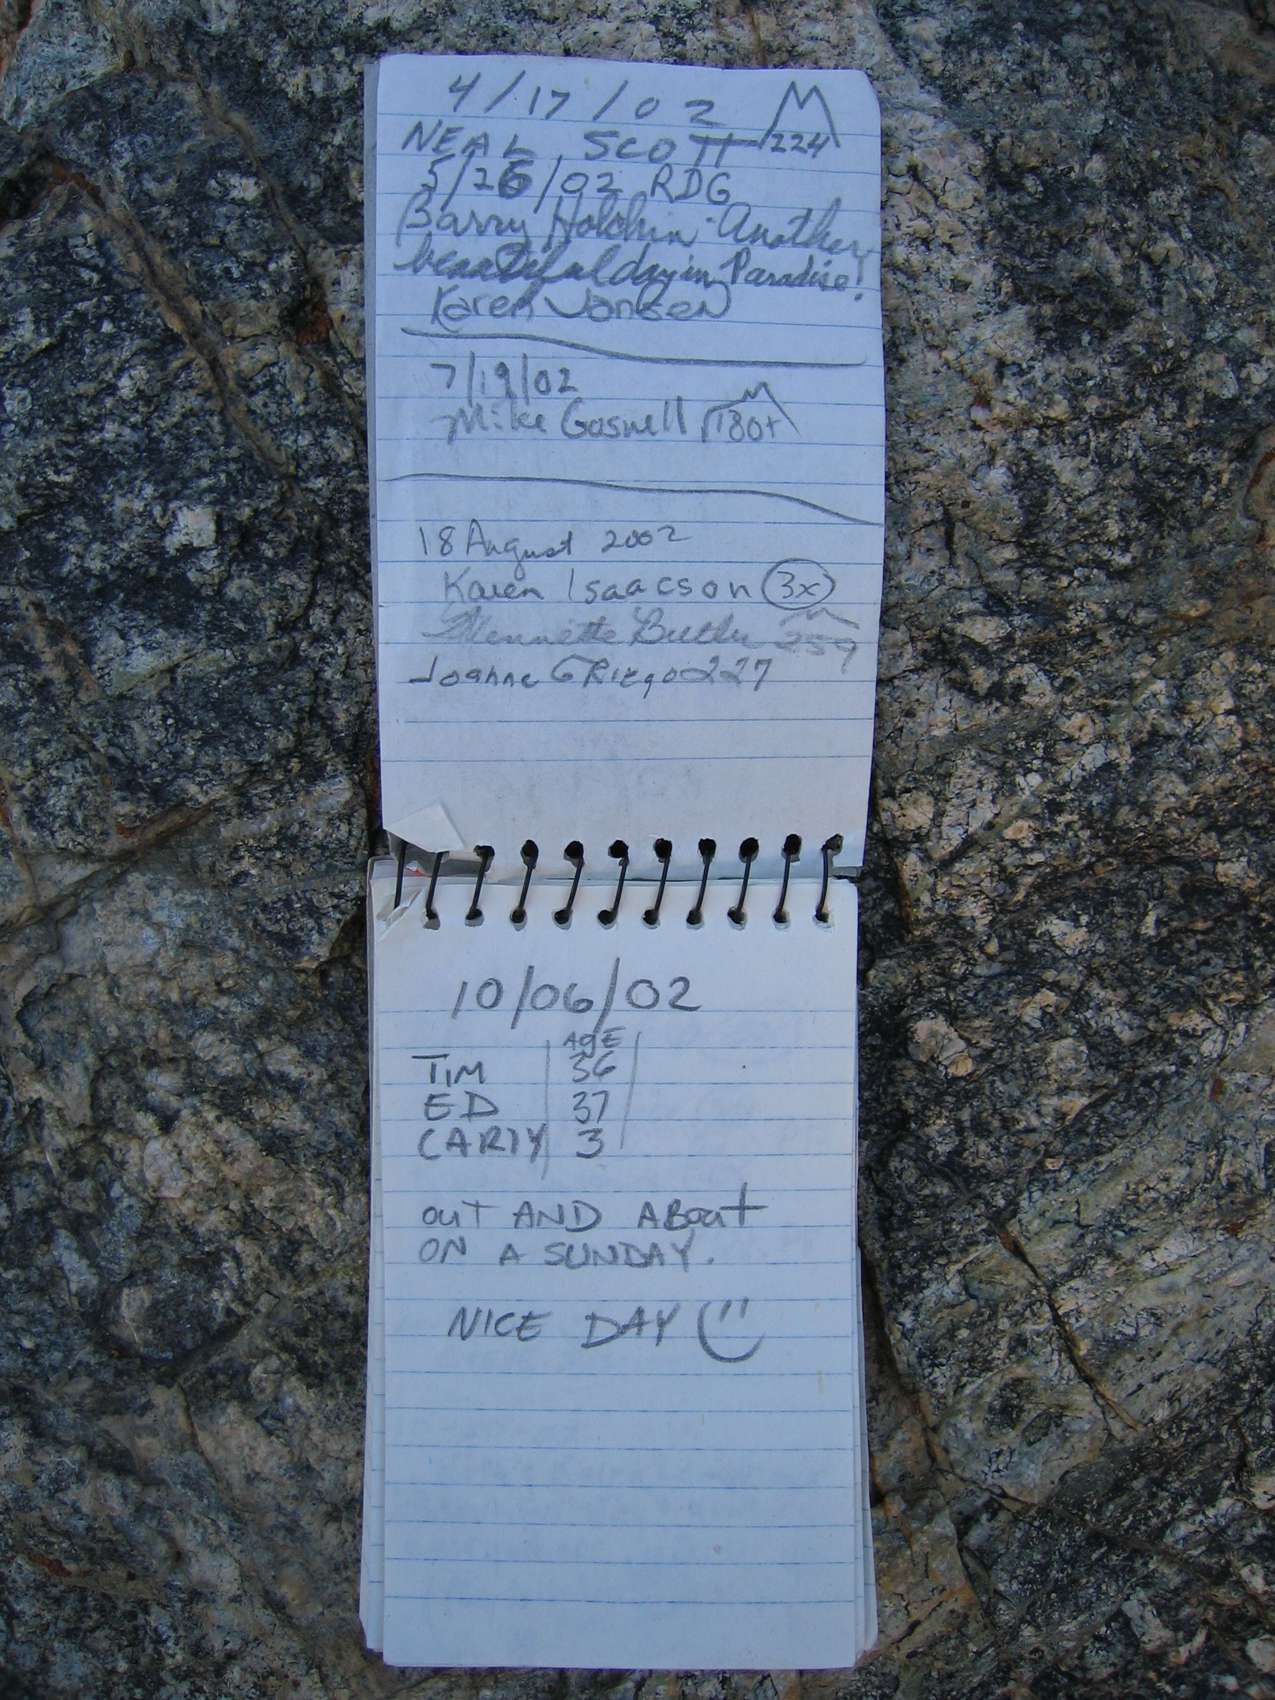 4/17/02
NEAL SCOTT 224
5/26/02 RDG
Barry Holchin - Another
beautiful day in Paradise!
Karen Jansen
7/19/02
Mike Goswell 180+
18 August 2002
Karen Isaacson 3x
Butler 259
Joanne Griego 227
10/06/02
AgE
TIM 36
ED 37
CARTY 3
OUT AND ABOUT
ON A SUNDAY.
NICE DAY